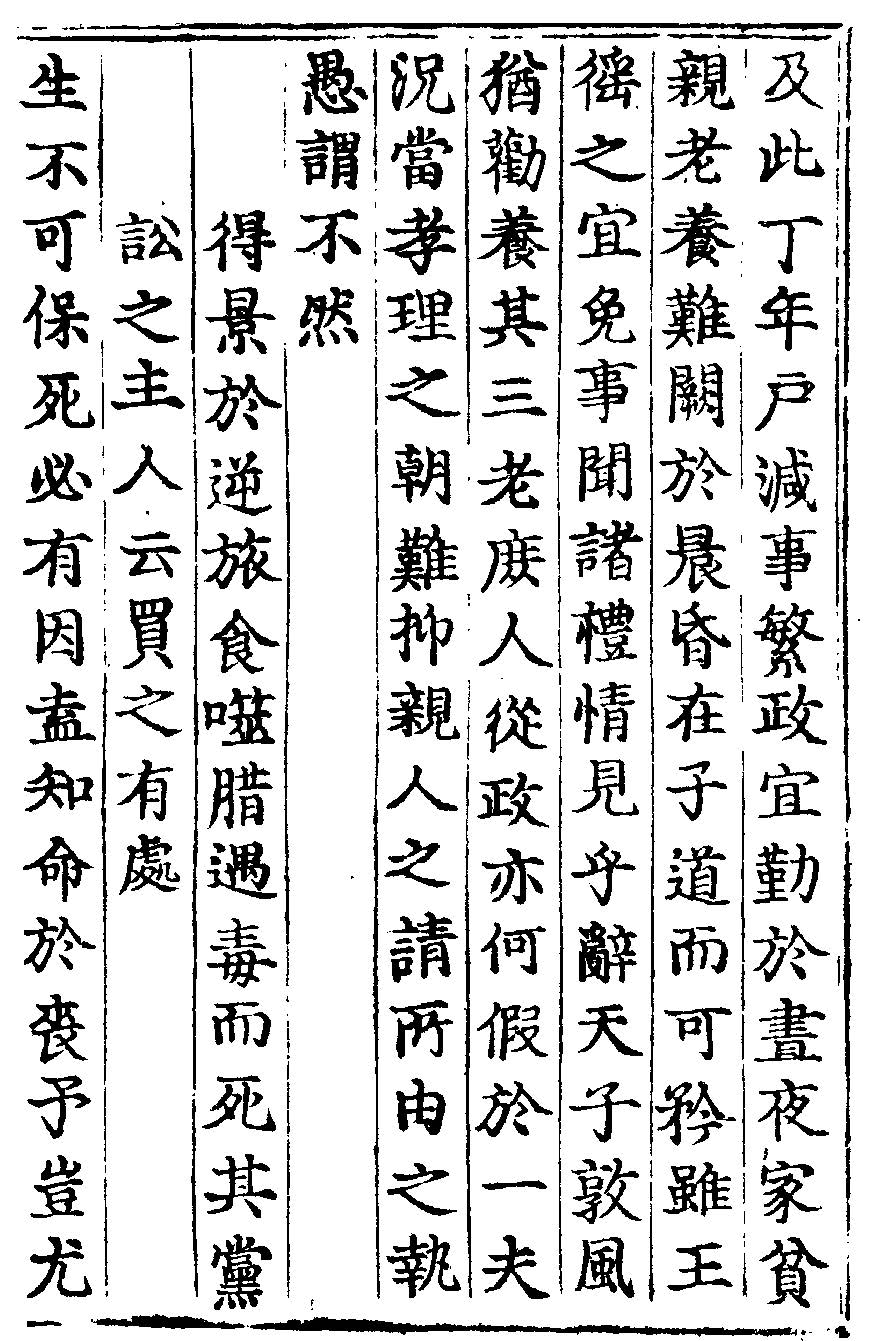 及此丁年戶減事繁政宜勤於晝夜家貧
親老養難闕於晨昏在子道而可矜雖王
徭之宜免事聞諸禮情見乎辭天子敦風
猶勸養其三老庻人從政亦何假於一夫
況當孝理之朝難抑親人之請所由之執
愚謂不然
得景於逆旅食噬腊遇毒而死其黨
訟之主人云買之有處
生不可保死必有因盍知命於喪予豈尤